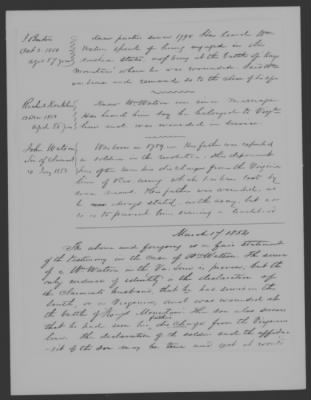 J. Burton
Oct 3. 1850
aged 87 years
knew parties since 1794 Has heard Wm
Watson speak of being engaged in the
service states, of being at the battle of
Mountain where he was wounded.
Richd
1854
aged 85 years
Knew Wm Watson ever since marriage
Has heard him say he belonged to Virga
line and was wounded in service.
John Watson
Son of claimant
Jany 1853
Was born in 1789 His father was reputed
a soldier in the revolution. This deponent
has often seen his discharge from the Virginia
line of the army which has been lost by
His father was wounded, as
he always stated, in the army, but
as to prevent him earning a livelihood
March 17 1854
The above and foregoing is a fair statement
of the testimony in the case of Wm Watson. The service
of a Wm Watson in the Va line is proven, but the
only evidence of identity is the declaration of
the claimants husband, that he had served in the
South, as a Virginian, and was wounded at
the battle of Kings Mountain. Her son also swears
that he had seen his Fathers discharge from the Virginia
line. The declaration of the soldier and the affida-
vit of the son may be true and yet it would